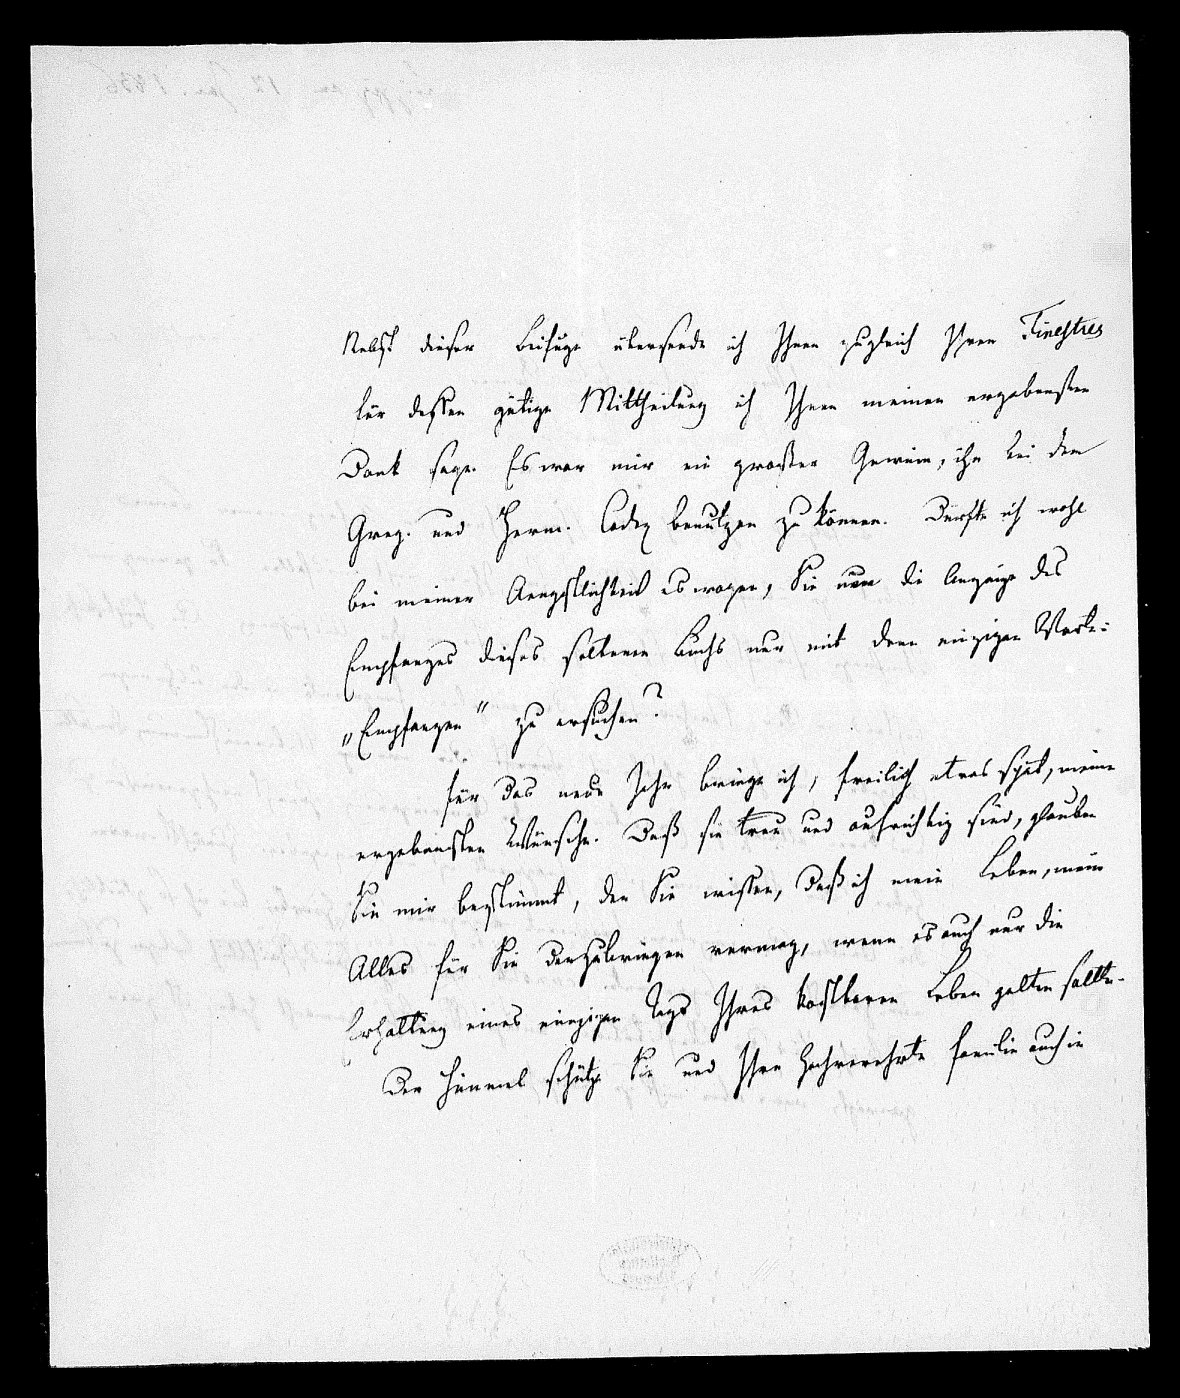 Nebst dieser Beifuge übersende ich Ihnen zugleich Ihren Finestres
für dessen gütige Mittheilung ich Ihnen meinen ergebensten
Dank sage. Es war mir ein großer Gewinn, ihn bei dem
Greg. und Herm. Codex benutzen zu können. Dürfte ich wohl
bei meiner Aengstlichkeit es wagen, Sie um die Anzeige des
Empfanges dieses seltenen Buchs nur mit dem einzigen Worte:
„Empfangen“ zu ersuchen?
Für das neue Jahr bringe ich, freilich etwas spät, meine
ergebensten Wünsche. Daß sie treu und aufrichtig sind, glauben
Sie mir bestimmt, da Sie wissen, daß ich mein Leben, mein
Alles für Sie darzubringen vermag, wenn es auch nur die
Erhaltung eines einzigen Tags Ihres kostbaren Leben gelten sollte.
Der Himmel schütze Sie und Ihre hochverehrte Familie auch in